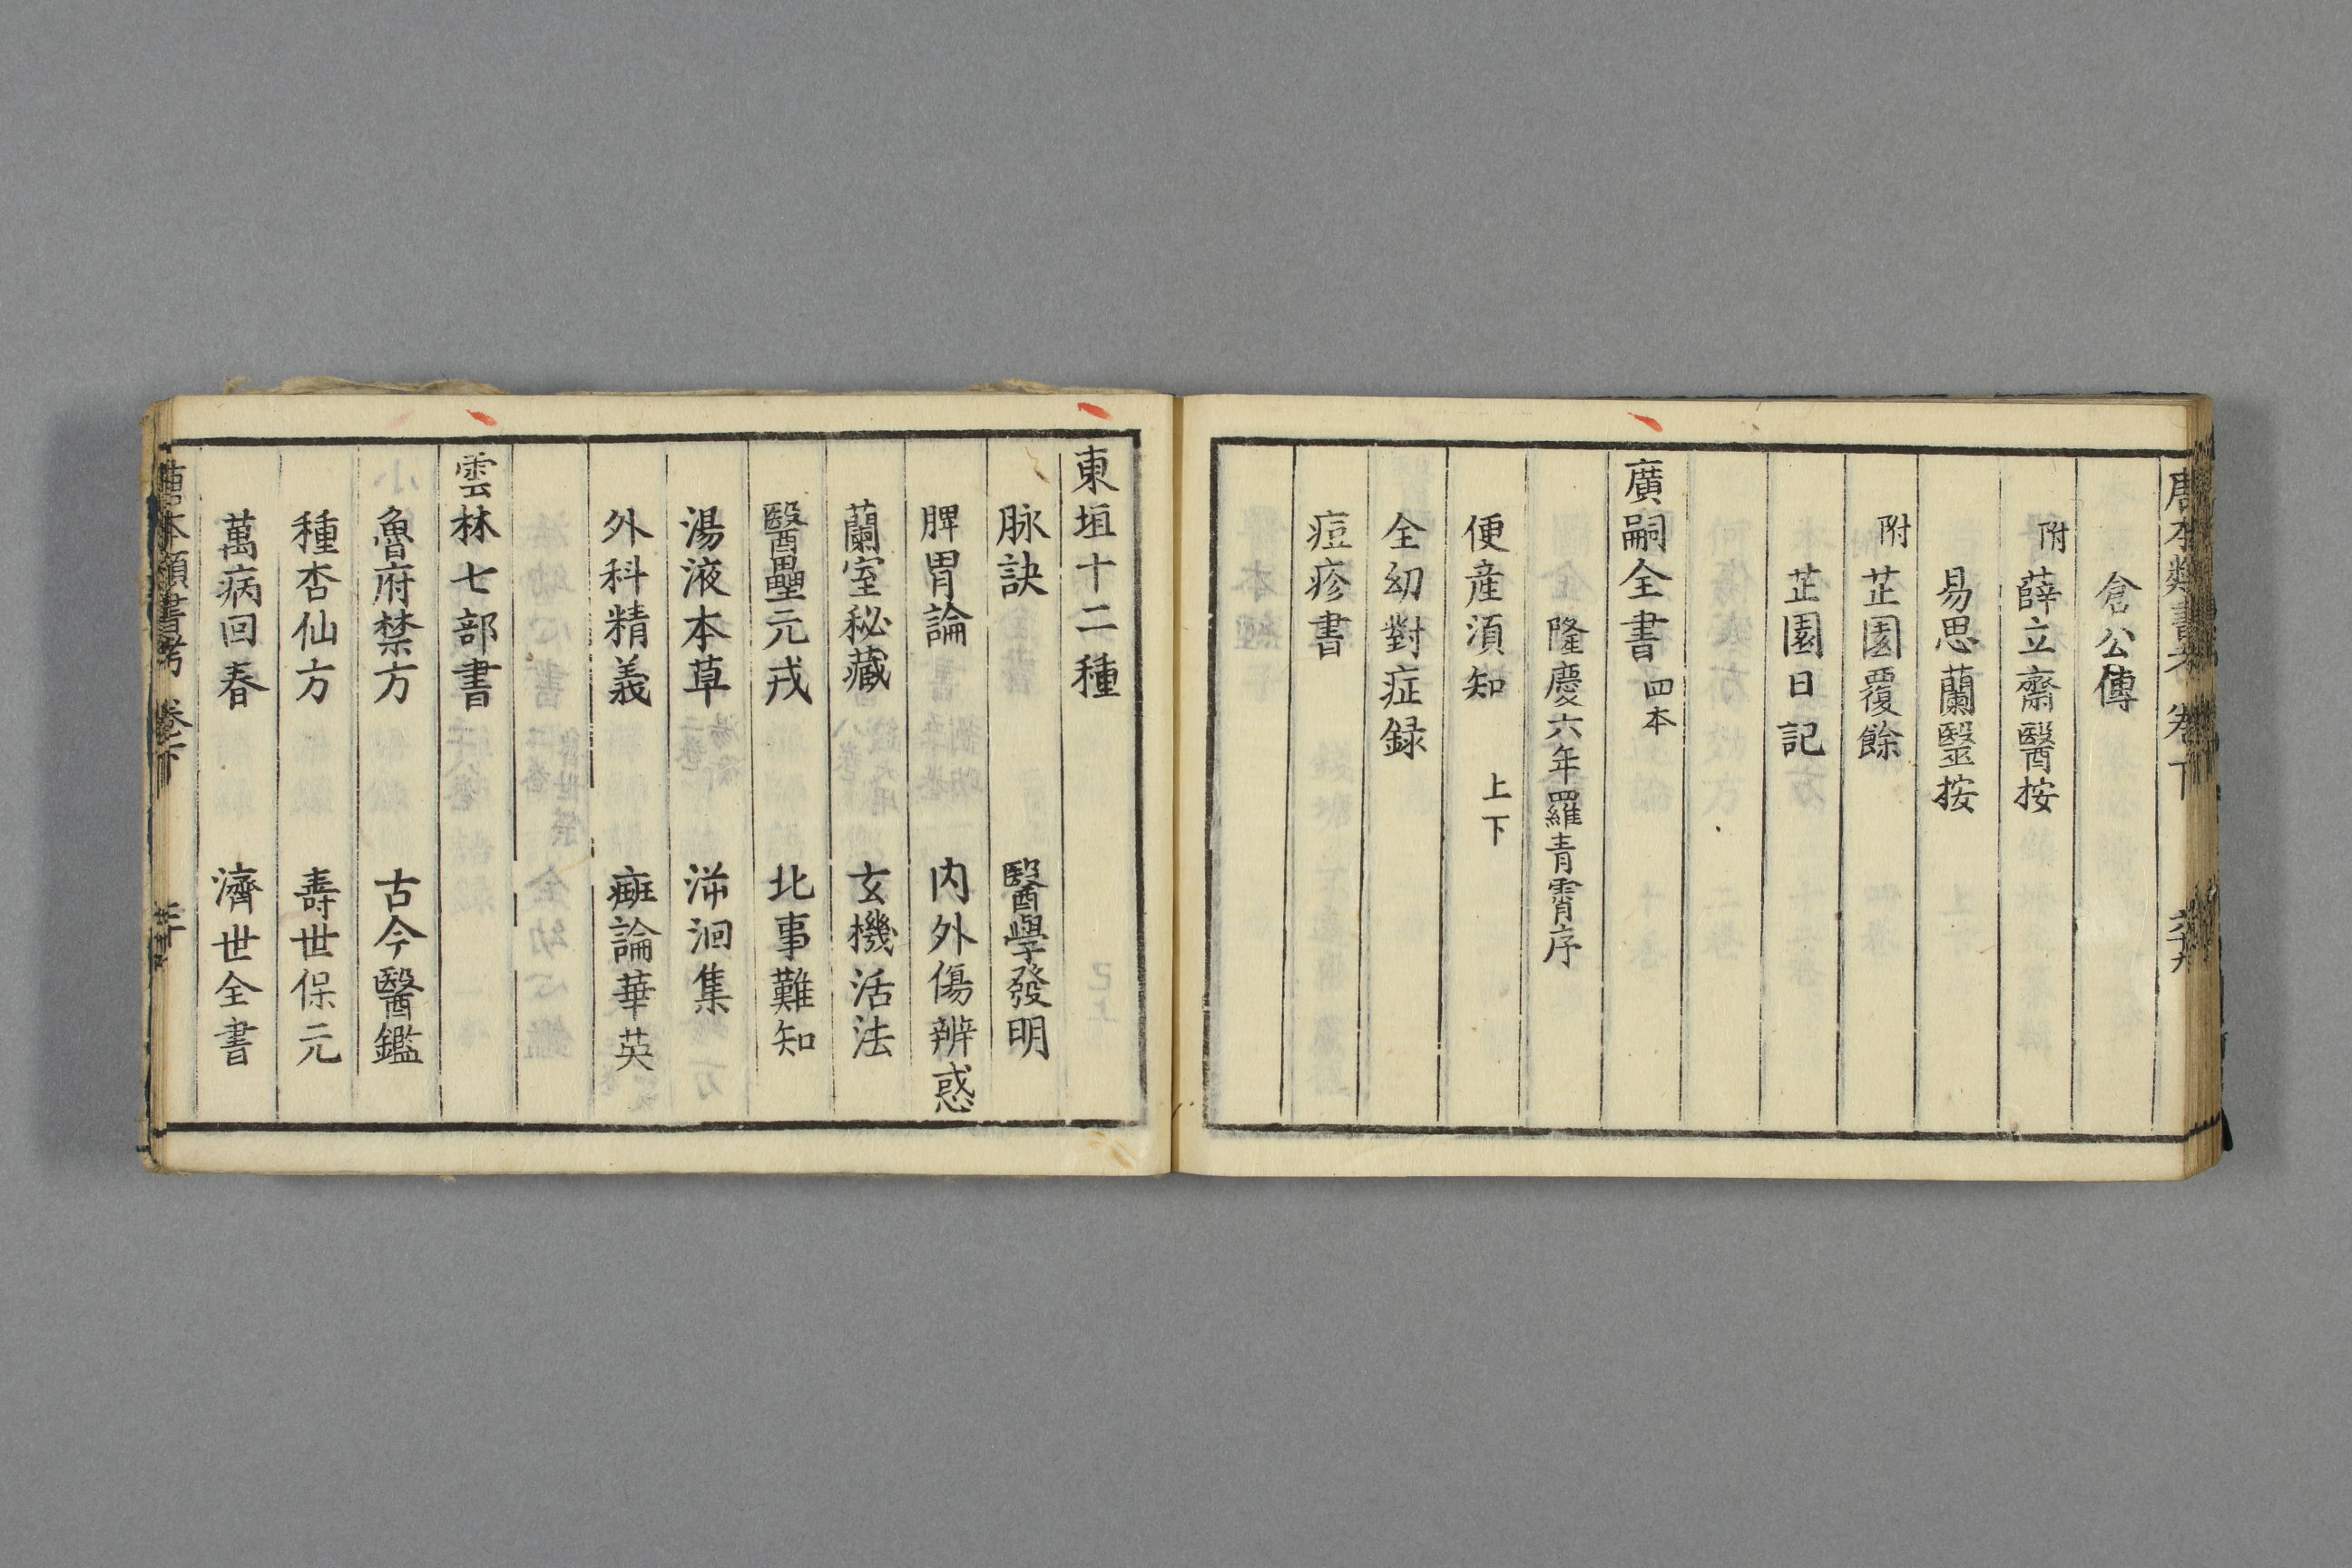 倉公傳
附 薛立齋醫按
易思蘭醫按
附 芷園覆餘
芷園日記
廣嗣全書 四本
隆慶六年羅青霄序
便産須知 上下
全幼對症録
痘疹書
東垣十二種
脉訣 醫學發明
脾胃論 内外傷辨惑
蘭室秘藏 玄機活法
醫壘元戎 北事難知
湯液本草 泝洄集
外科精義 癍論華英
雲林七部書
魯府禁方 古今醫鑑
種杏仙方 壽世保元
萬病回春 濟世全書